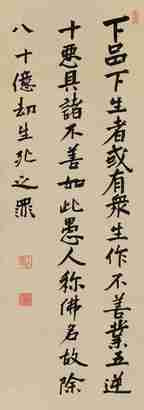 下品下生者或有衆生作不善業五逆
十惡具諸不善如此愚人称佛名故除
八十億劫生死之罪